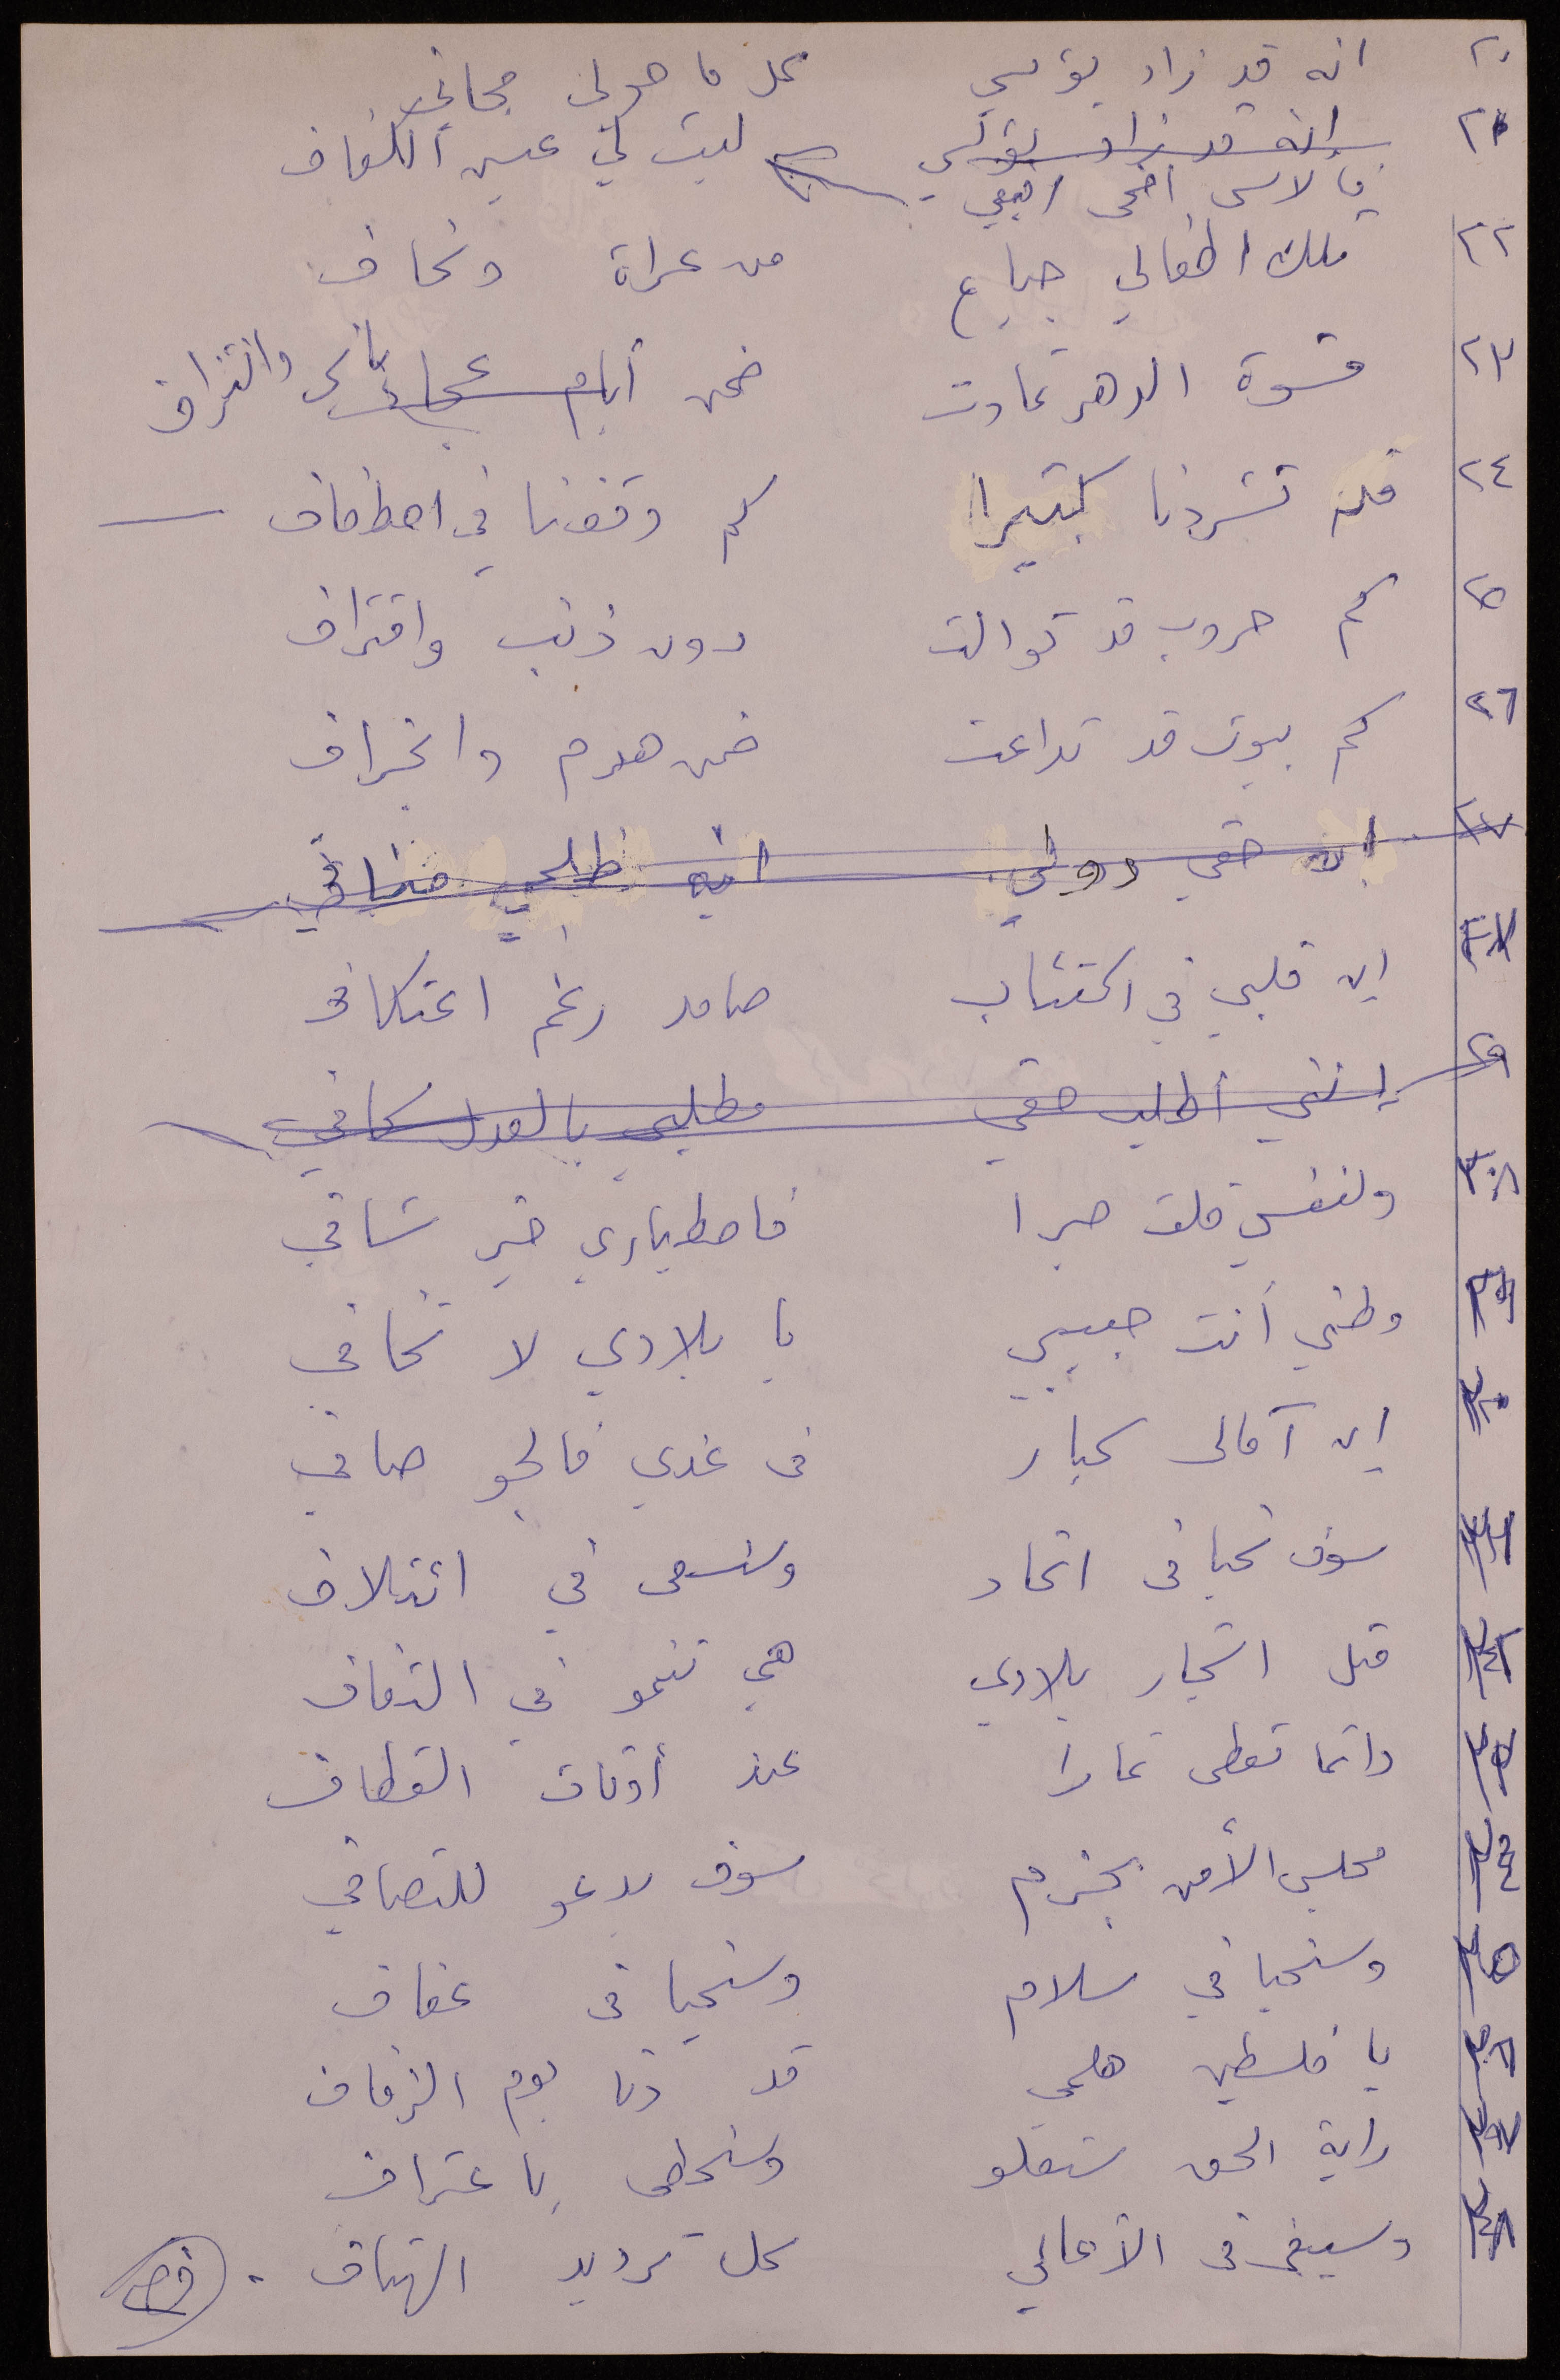 ٢٠ انه قد زاد بؤسي كل ما حولي مجافي
٢١ انه قد زاد بؤسي ليت لي عيس الكفاف
فالاسى أضحى أنيسي
٢٢ تلك اطفالي جياع من عراة ونحاف
٢٣ قسوة الدهر تمادت ضمن أيام عجاف واستنزاف
٢٤ قد تشردنا كثيرا كم وقفنا في اصطفاف
٢٥ كم حروب قد توالت دون ذنب واقتراف
٢٦ كم بيوت قد تداعت ضمن هدم وانجراف
٢٧ ان حقي دولي انه طلبي
٢٧ ان قلبي في اكتئاب صامد رغم اعتكافي
٢٩ إنني أطلب حقي مطلبي بالعدل كافي
٢٨ ولنفسي قلت صبرا فاصطباري خير شافي
وطني أنت حبيبي يا بلادي لا تخافي
ان آمالي كبار في غدي فالجو صافي
سوف نحيا في اتحاد وسنسعى في ائتلاف
مثل اشجار بلادي هي تنمو في التفاف
دائما تعطي ثمارا عند أوقات القطاف
مجلس الأمن بحزم سوف يدعو للتصافي
وسنحيا في سلام وسنحيا في عفاف
يا فلسطين هلمي قد دنا يوم الزفاف
راية الحق ستعلو وسنحظى باعتراف
وسيبقى في الأعالي كل ترديد الهتاف .